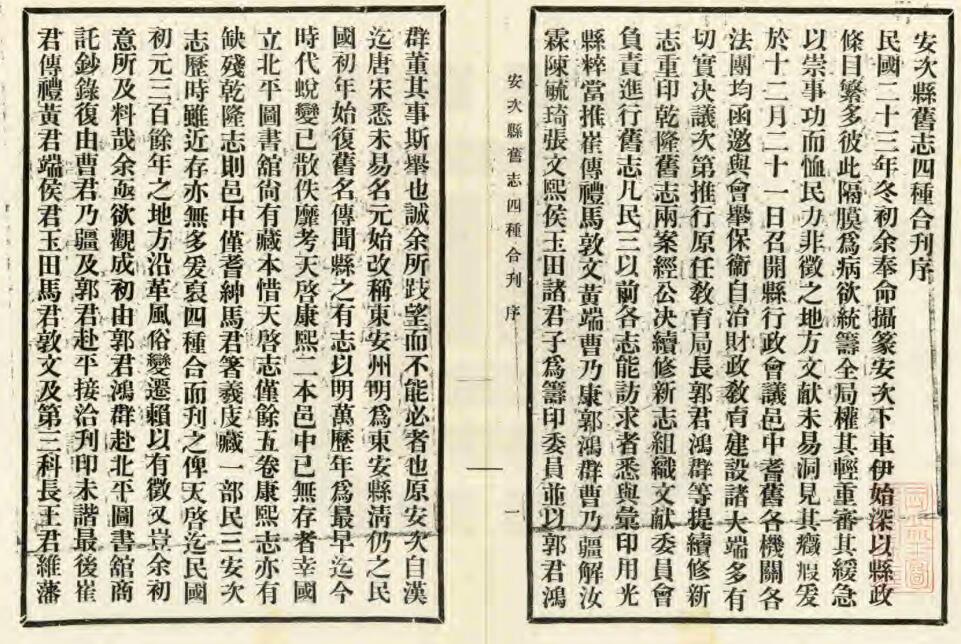 安次縣舊志四種合刋序
民國二十三年冬初余奉命攝篆安次下車伊始深以縣政
條目繁多彼此隔膜爲病欲統籌全局權其輕重審其緩急
以崇事功而恤民力非徵之地方文献未易洞見其癥瘕爰
於十二月二十一日召開縣行政會議邑中耆舊各機關各
法團均函邀與會舉保衞自治財政敎育建設諸大端多有
切實决議次第推行原任敎育局長郭君鴻群等提續修新
志重印乾隆舊志兩案經公决續修新志組織文献委員會
負責進行舊志凡民三以前各志能訪求者悉與彙印用光
縣粹當推崔傳禮馬敦文黃端曹乃康郭鴻群曹乃疆解汝
霖陳毓琦張文熙侯玉田諸君子爲籌印委員並以郭君鴻
安次縣舊志四種合刋 序
一
群董其事斯舉也誠余所跂望而不能必者也原安次自漢
迄唐宋悉未易名元始改稱東安州明爲東安縣淸仍之民
國初年始復舊名傳聞縣之有志以明萬歷年爲最早迄今
時代蛻變已散佚靡考天啓康熙二本邑中已無存者幸國
立北平圖書舘尙有藏本惜天啓志僅餘五卷康熙志亦有
缺殘乾隆志則邑中僅耆紳馬君箸羲庋藏一部民三安次
志歷時雖近存亦無多爰裒四種合而刋之俾天啓迄民國
初元三百餘年之地方沿革風俗變遷賴以有徵又豈余初
意所及料哉余亟欲觀成初由郭君鴻群赴北平圖書舘商
託鈔錄復由曹君乃疆及郭君赴平接洽刋印未諧最後崔
君傳禮黃君端侯君玉田馬君敦文及第三科長王君維藩